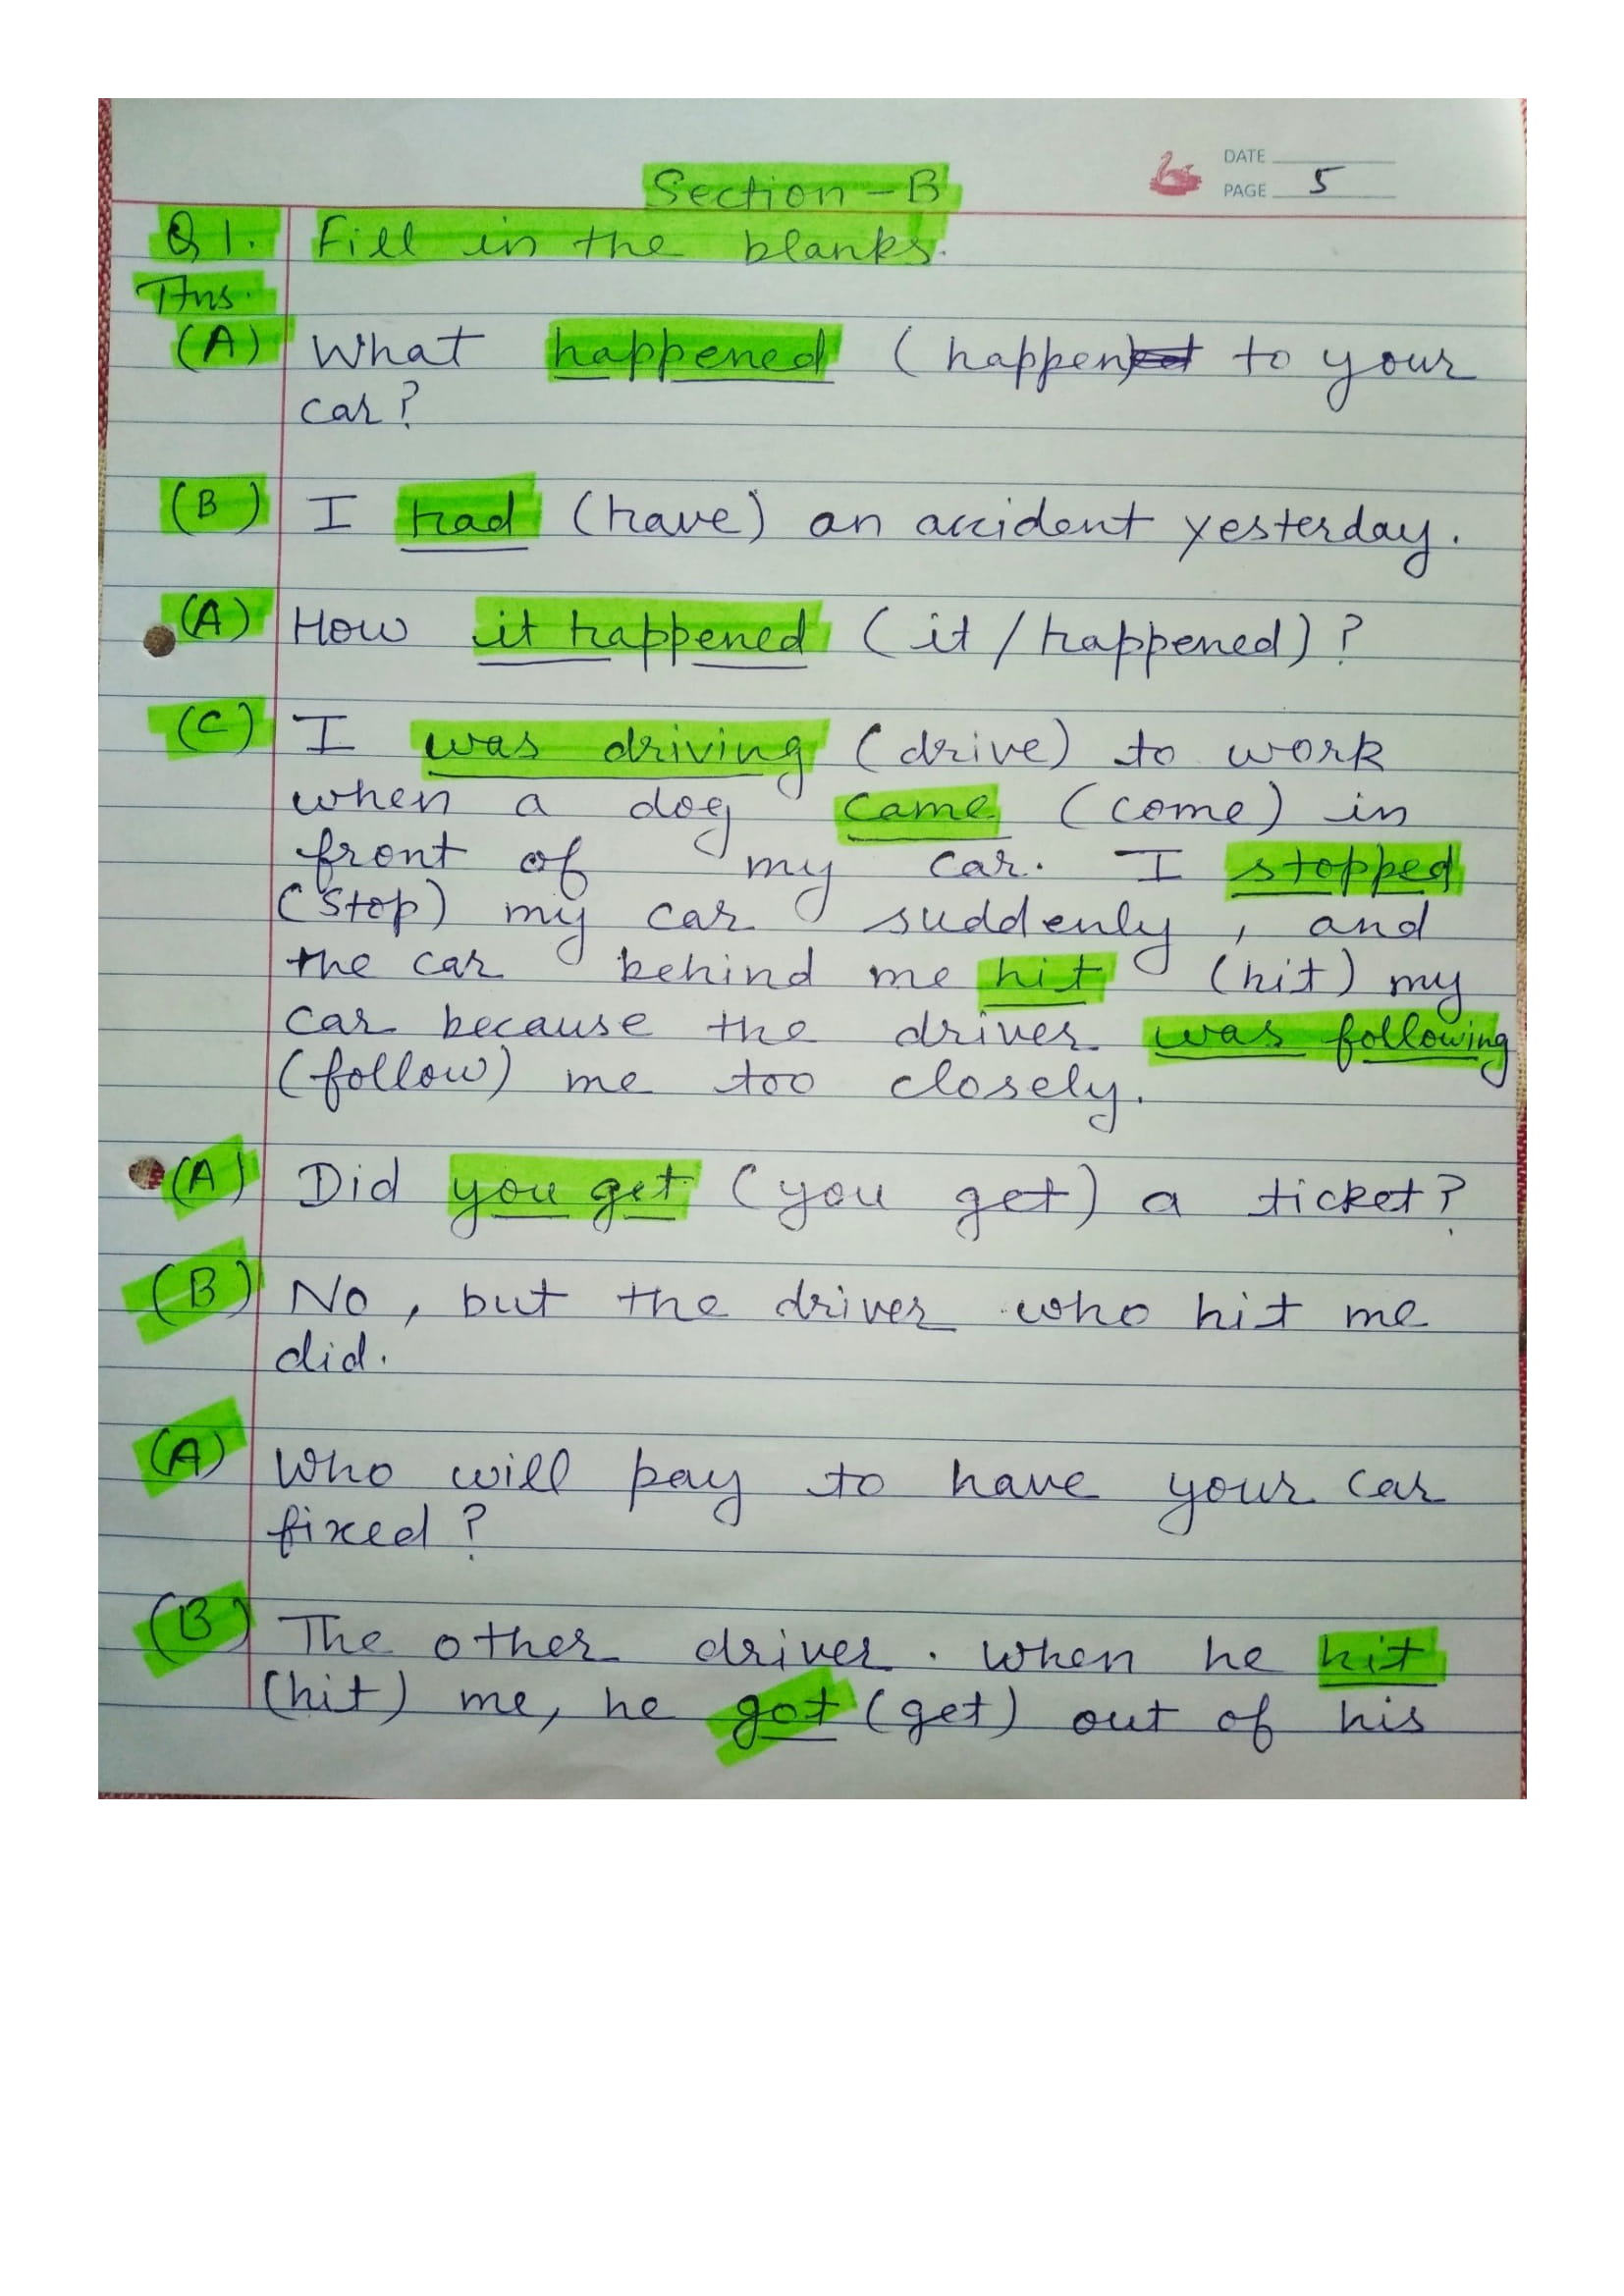 DATE
PAGE 5
Section - B
Q1. Fill in the blanks.
Ans.
(A) What happened (happen) to your
car?
(B) I had (have) an accident yesterday.
(A) How it happened (it / happened) ?
(C) I was driving (drive) to work
when a dog came (come) in
front of my car. I stopped
(stop) my car suddenly, and
the car behind me hit (hit) my
car because the driver was following
(follow) me too closely.
(A) Did you get (you get) a ticket?
(B) No, but the driver who hit me
did.
(A) Who will pay to have your car
fixed ?
(B) The other driver. When he hit
(hit) me, he got (get) out of his